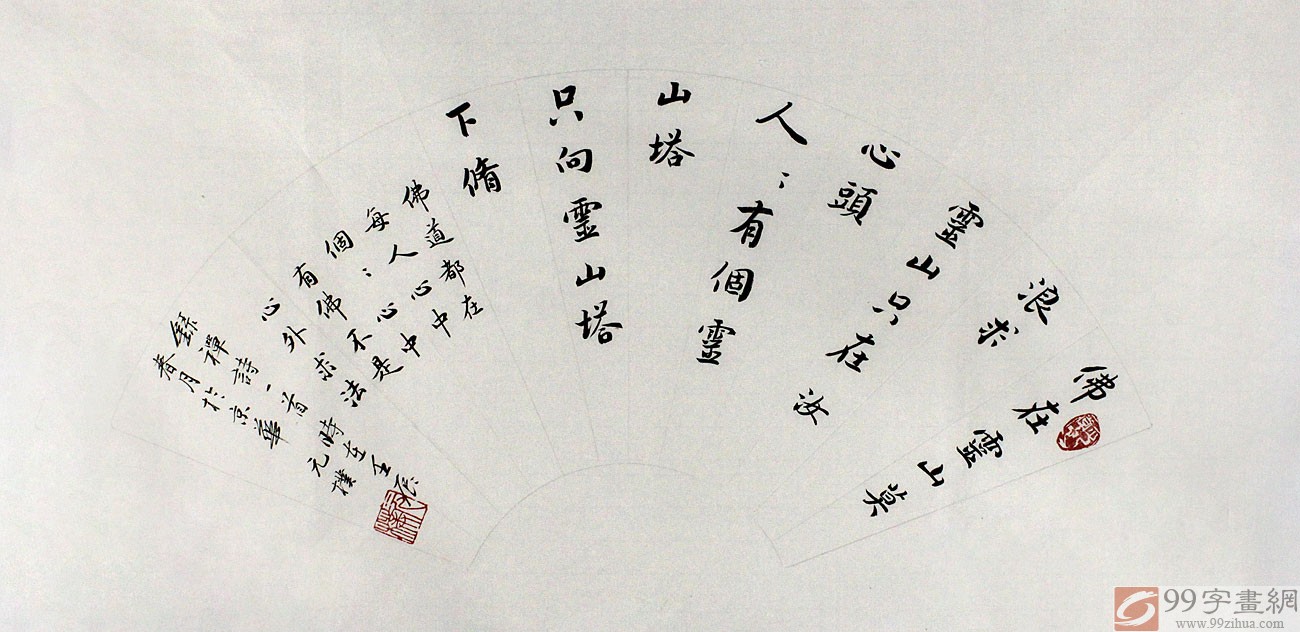 佛在靈山莫
浪求
靈山只在汝
心頭
人〻有個靈
山塔
只向靈山塔
下脩
佛道都在
每人心中
個〻心中
有佛不是
心外求法
錄禪詩一首時在壬辰
春月於京華元樸
99字畫網
www.99zihua.com